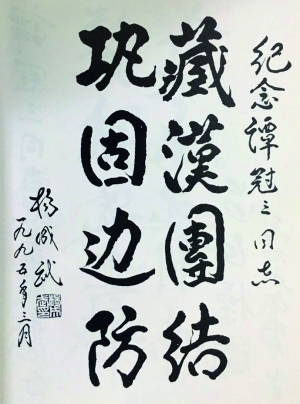 纪念谭冠三同志
藏漢團结
巩固边防
杨成武
一九九五年三月